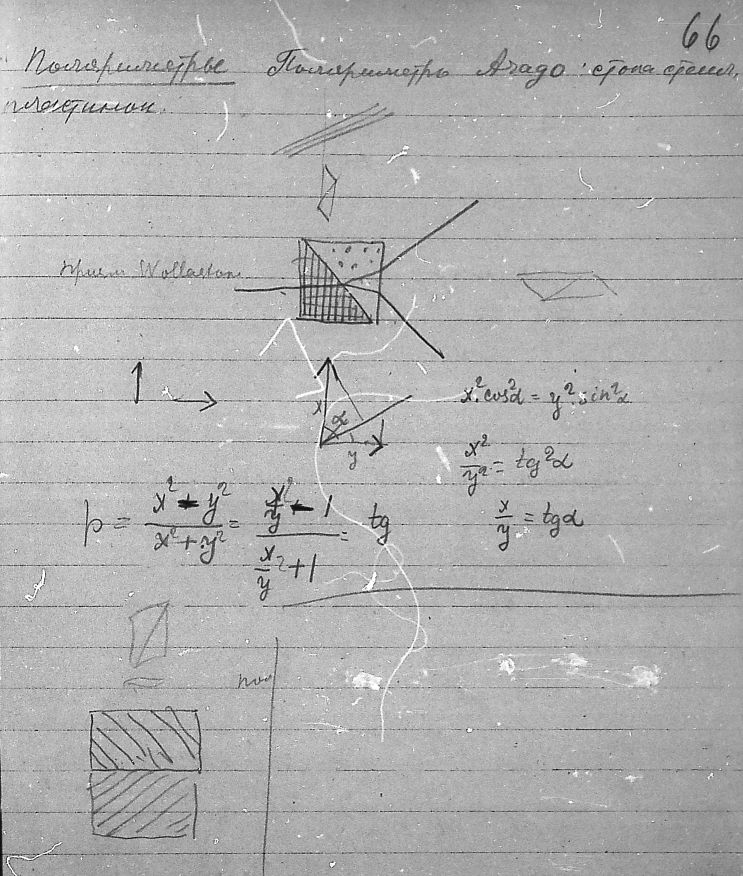 66
Поляриметры Поляриметръ Араго: стопа стекл.
пластинок.
призм Wollaston
x α y
x² cos²α = y² sin²α
x²/y² = tg²α
x/y = tgα
p = (x² - y²)/(x² + y²) = (x²/y - 1)/(x/y ² + 1) = tg